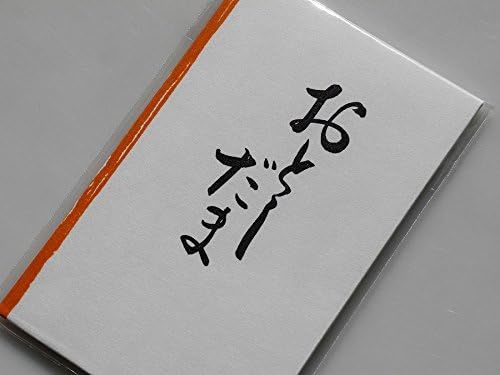 おとし
だま